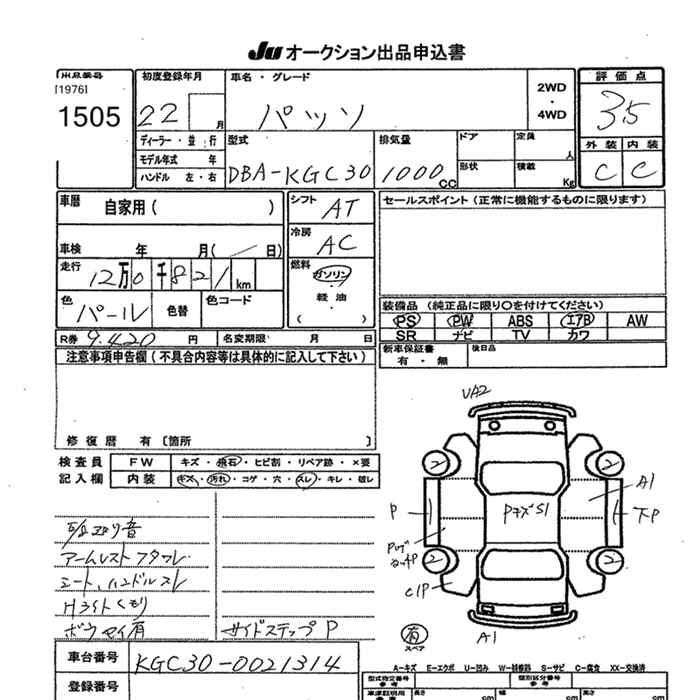 Ju オークション出品申込書
出品番号
[1976]
1505
初度登録年月
22 月
車名・グレード
パッソ
2WD
・
4WD
評価点
3.5
外装 内装
C C
ディーラー・並行
モデル年式 年
ハンドル 左・右
型式
DBA-KGC30
排気量
1000 cc
ドア
形状
定員 人
積載 Kg
車歴 自家用( )
車検 年 月( 日)
走行
12万0千821km
色
パール
色替
色コード
R券 9,420 円 名変期限 月 日
シフト
AT
冷房
AC
燃料
ガソリン
・
軽油
・
( )
セールスポイント(正常に機能するものに限ります)
装備品(純正品に限り○を付けてください)
PS PW ABS エアB AW
SR ナビ TV カワ
新車保証書
有・無
検日品
注意事項申告欄(不具合内容等は具体的に記入して下さい)
修復歴 有〔箇所 〕
検査員
記入欄
FW キズ・飛石・ヒビ割・リペア跡・×要
内装 キズ・汚れ・コゲ・穴・スレ・キレ・破レ
アームレストフタワレ
シート、ハンドルスレ
Hライトくもり
サイドステップP
UA2
2
2
2
2
P
A1
PキズS1
C1P
A1
有
スペア
A-キズ E-エクボ U-凹み W-補修跡 S-サビ C-腐食 XX-交換済
車台番号
KGC30-0021314
登録番号
型式指定番号
参考
類別区分番号
参考
長さ
幅
高さ
cm cm cm